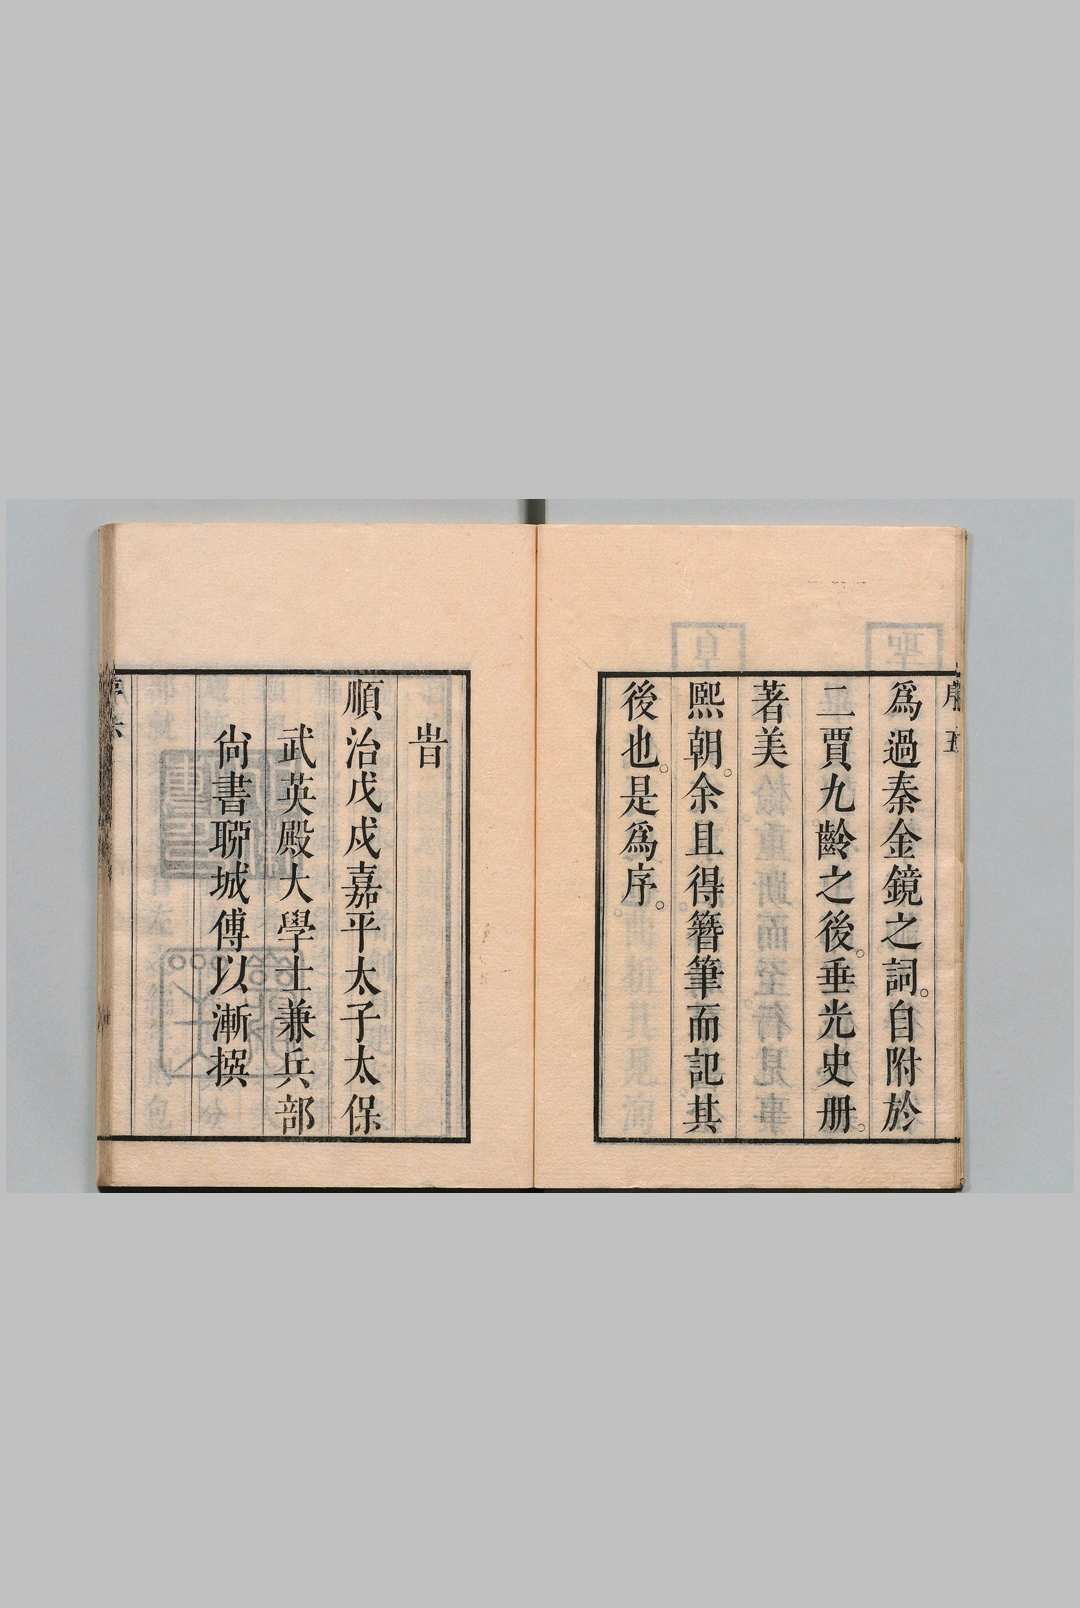 序 五
爲過秦金鏡之詞。自附於
二賈九齡之後。垂光史册。
著美
熙朝。余且得簪筆而記其
後也。是爲序。
旹
順治戊戌嘉平太子太保
武英殿大學士兼兵部
尙書聊城傅以漸撰
序 六